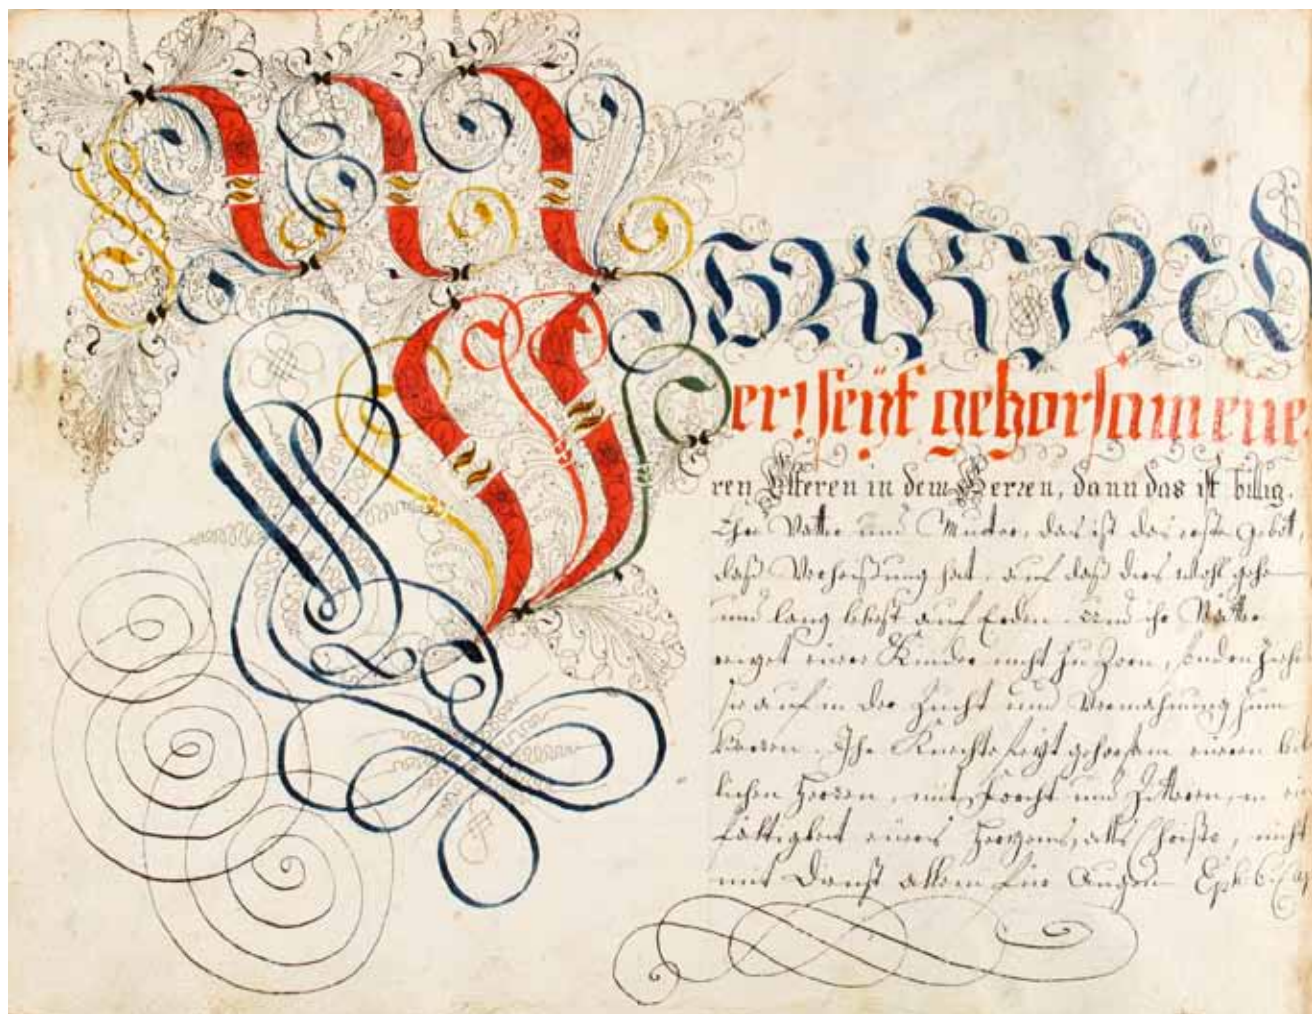 IHR KIND
er! seÿt gehorsam eue
ren Elteren in dem Herren, dann das ist billig.
Ehre Vatter und Mutter, das ist das erste gebot,
daß Verheißung hat. auf daß dirs wohl gehe
und lang lebest auf Erden. und ihr Vätter
reizet eüere Kinder nicht zu Zorn, sonderen ziehe
sie auf in der Zucht und Vermahnung zum
Herren. Ihr Knechte seÿt gehorsam eüeren leib
lichen Herren, mit Forcht und Zitteren, in ein
fältigkeit eüers Herzens, alls Christo, nicht
mit Dienst allein für Augen Eph: 6. Cap